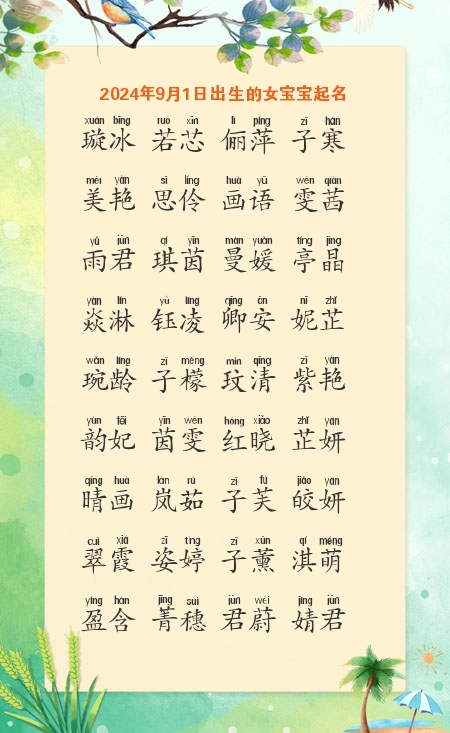 2024年9月1日出生的女宝宝起名
xuán bīng ruò xīn lì píng zǐ hán
璇冰 若芯 俪萍 子寒
měi yàn sī líng huà yǔ wén qiàn
美艳 思伶 画语 雯茜
yǔ jūn qí yīn màn yuàn tíng jīng
雨君 琪茵 曼媛 亭晶
yàn lín yù líng qīng ān nī zhǐ
焱淋 钰凌 卿安 妮芷
wǎn líng zǐ méng mín qīng zǐ yàn
琬龄 子檬 玟清 紫艳
yùn fēi yīn wén hóng xiǎo zhǐ yán
韵妃 茵雯 红晓 芷妍
qíng huà lán rú zǐ fú jiǎo yán
晴画 岚茹 子芙 皎妍
cuì xiá zī tíng zǐ xūn qí méng
翠霞 姿婷 子薰 淇萌
yíng hán jīng suì jūn wèi jìng jūn
盈含 菁穗 君蔚 婧君